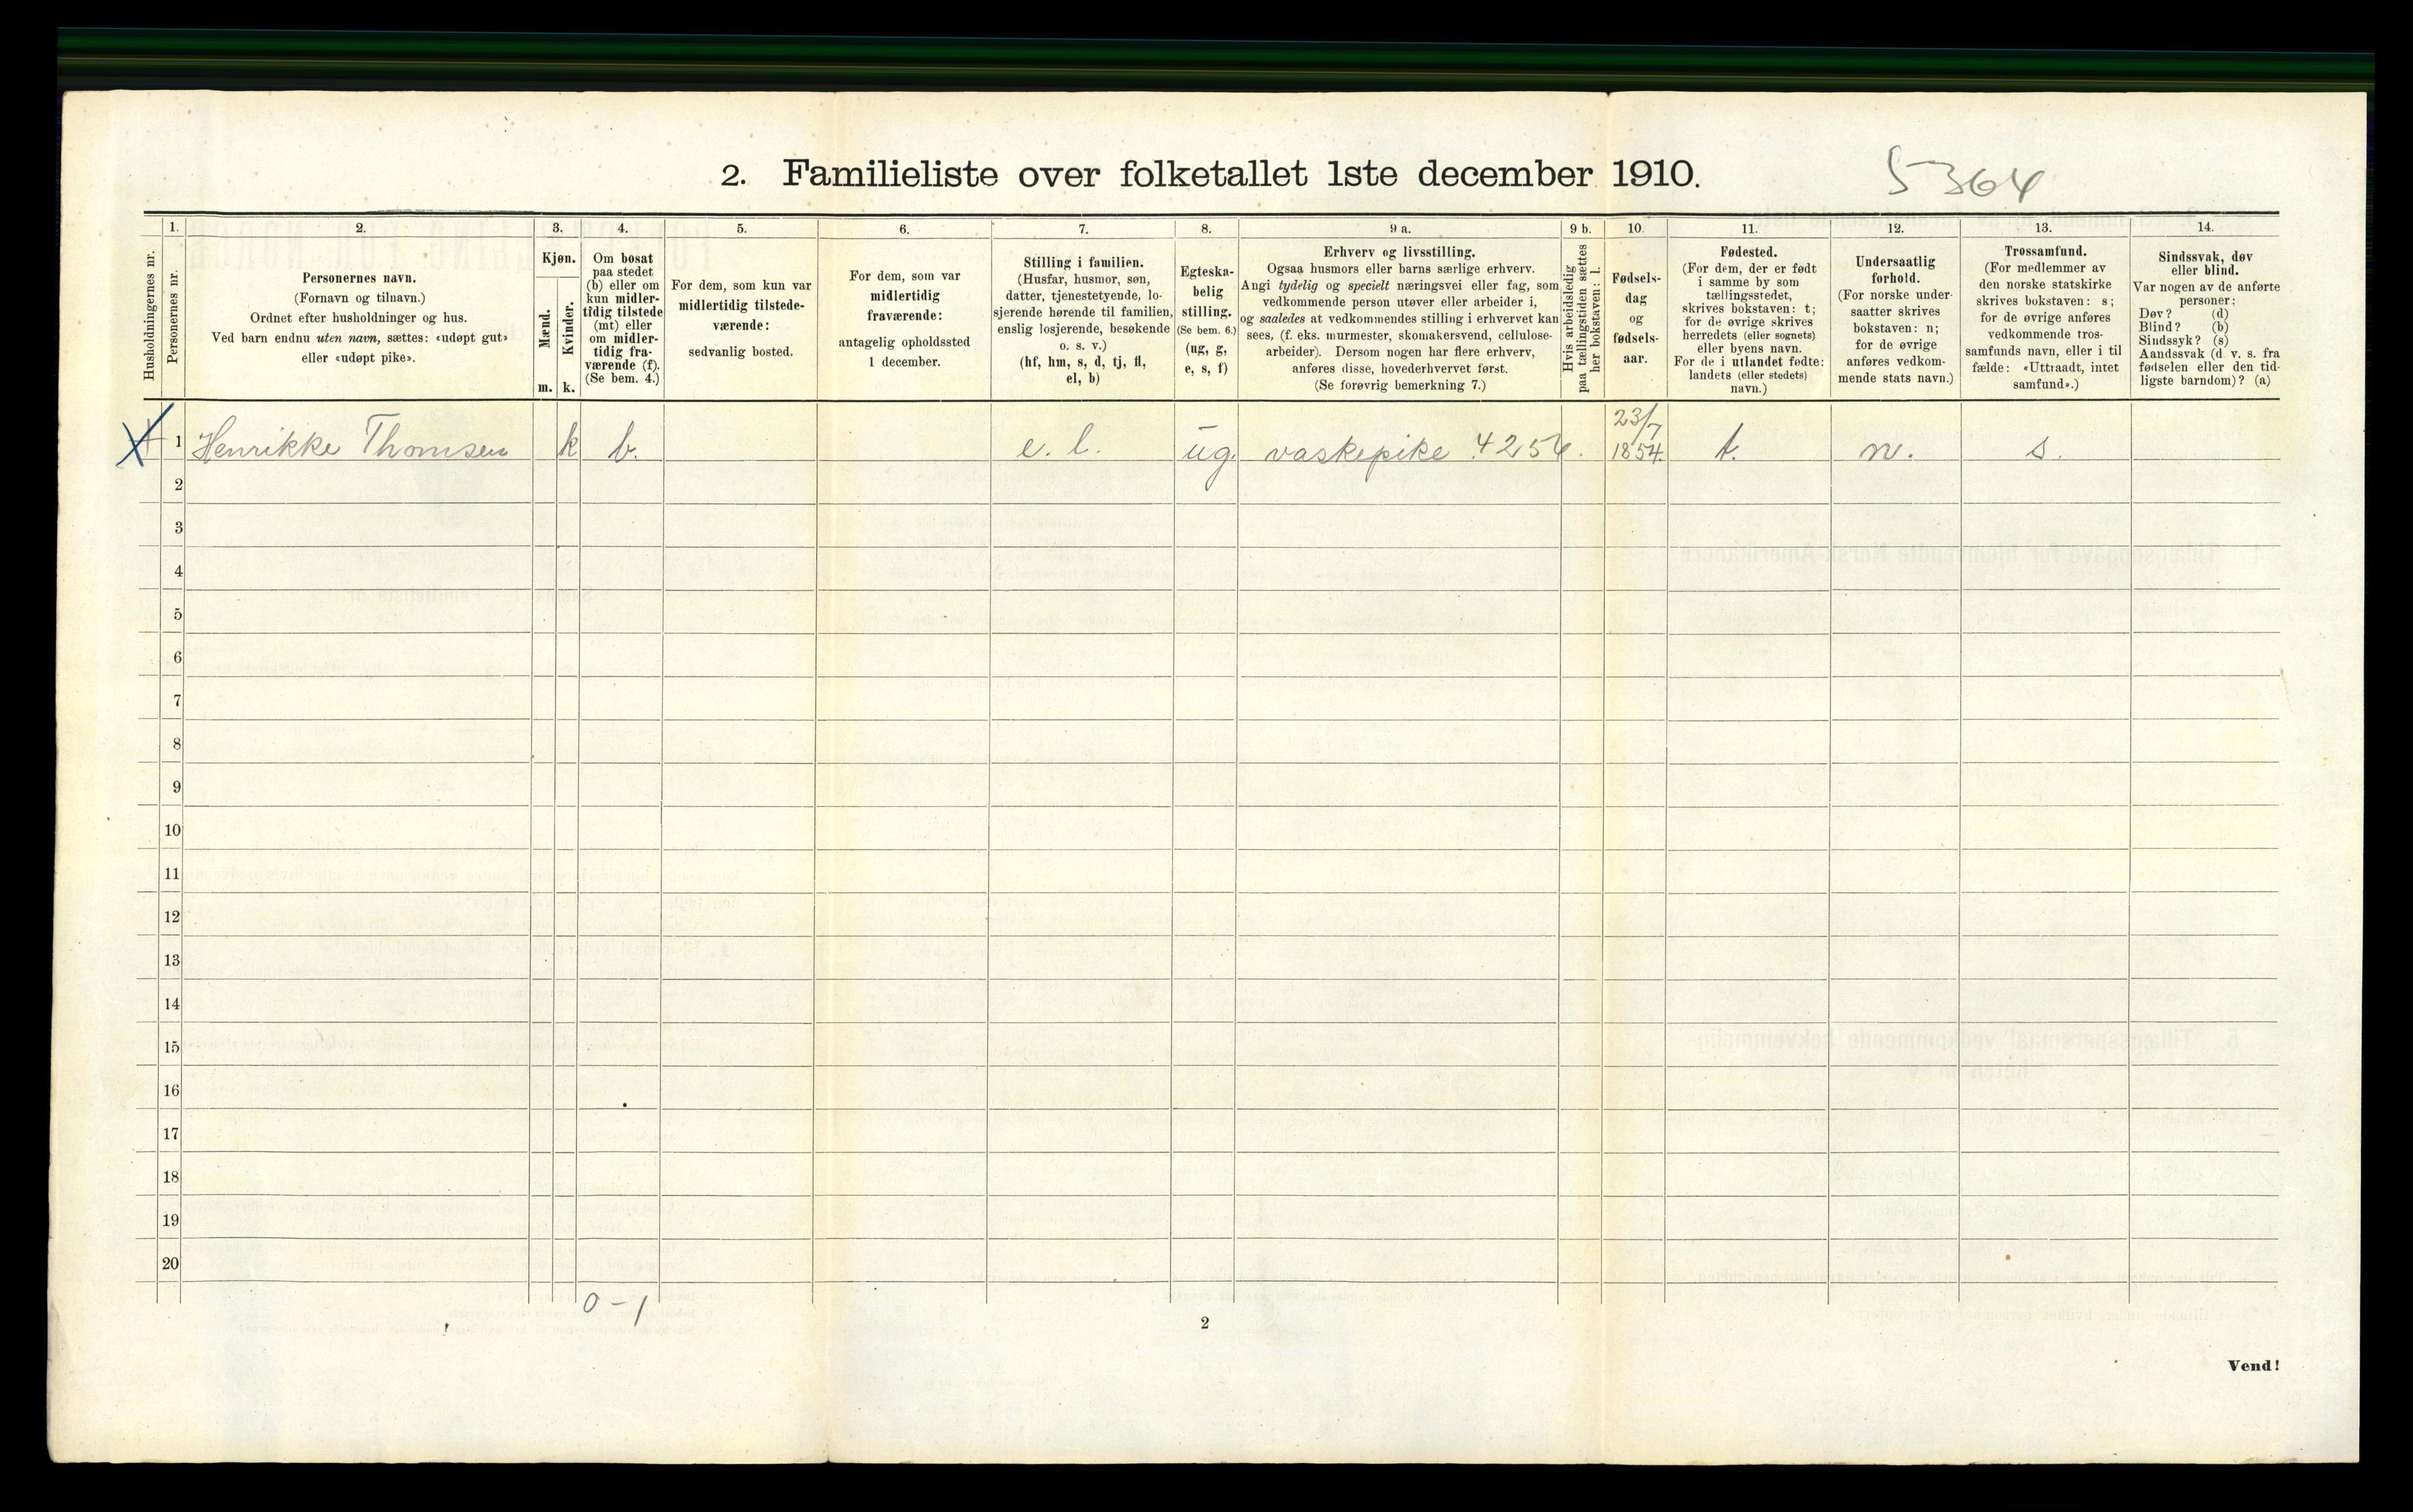 2. Familieliste over folketallet 1ste december 1910.
5364
Husholdningernes nr.
1.
Personernes nr.
2.
Personernes navn.
(Fornavn og tilnavn.)
Ordnet efter husholdninger og hus.
Ved barn endnu uten navn, sættes: «udøpt gut»
eller «udøpt pike».
3.
Kjøn.
Mænd.
m.
Kvinder.
k.
4.
Om bosat
paa stedet
(b) eller om
kun midler-
tidig tilstede
(mt) eller
om midler-
tidig fra-
værende (f).
(Se bem. 4.)
5.
For dem, som kun var
midlertidig tilstede-
værende:
sedvanlig bosted.
6.
For dem, som var
midlertidig
fraværende:
antagelig opholdssted
1 december.
7.
Stilling i familien.
(Husfar, husmor, søn,
datter, tjenestetyende, lo-
sjerende hørende til familien,
enslig losjerende, besøkende
o. s. v.)
(hf, hm, s, d, tj, fl,
el, b)
8.
Egteska-
belig
stilling.
(Se bem. 6.)
(ug, g,
e, s, f)
9 a.
Erhverv og livsstilling.
Ogsaa husmors eller barns særlige erhverv.
Angi tydelig og specielt næringsvei eller fag, som
vedkommende person utøver eller arbeider i,
og saaledes at vedkommendes stilling i erhvervet kan
sees, (f. eks. murmester, skomakersvend, cellulose-
arbeider). Dersom nogen har flere erhverv,
anføres disse, hovederhvervet først.
(Se forøvrig bemerkning 7.)
9 b.
Hvis arbeidsledig
paa tællingstiden sættes
her bokstaven: l.
10.
Fødsels-
dag
og
fødsels-
aar.
11.
Fødested.
(For dem, der er født
i samme by som
tællingsstedet,
skrives bokstaven: t;
for de øvrige skrives
herredets (eller sognets)
eller byens navn.
For de i utlandet fødte:
landets (eller stedets)
navn.)
12.
Undersaatlig
forhold.
(For norske under-
saatter skrives
bokstaven: n;
for de øvrige
anføres vedkom-
mende stats navn.)
13.
Trossamfund.
(For medlemmer av
den norske statskirke
skrives bokstaven: s;
for de øvrige anføres
vedkommende tros-
samfunds navn, eller i til
fælde: «Uttraadt, intet
samfund».)
14.
Sindssvak, døv
eller blind.
Var nogen av de anførte
personer:
Døv? (d)
Blind? (b)
Sindssyk? (s)
Aandssvak (d. v. s. fra
fødselen eller den tid-
ligste barndom)? (a)
X 1 Henrikke Thomsen k b. e. l. ug. vaskepike 4256. 23/7 1854. t. n. s.
2
3
4
5
6
7
8
9
10
11
12
13
14
15
16
17
18
19
20
0-1
2
Vend!